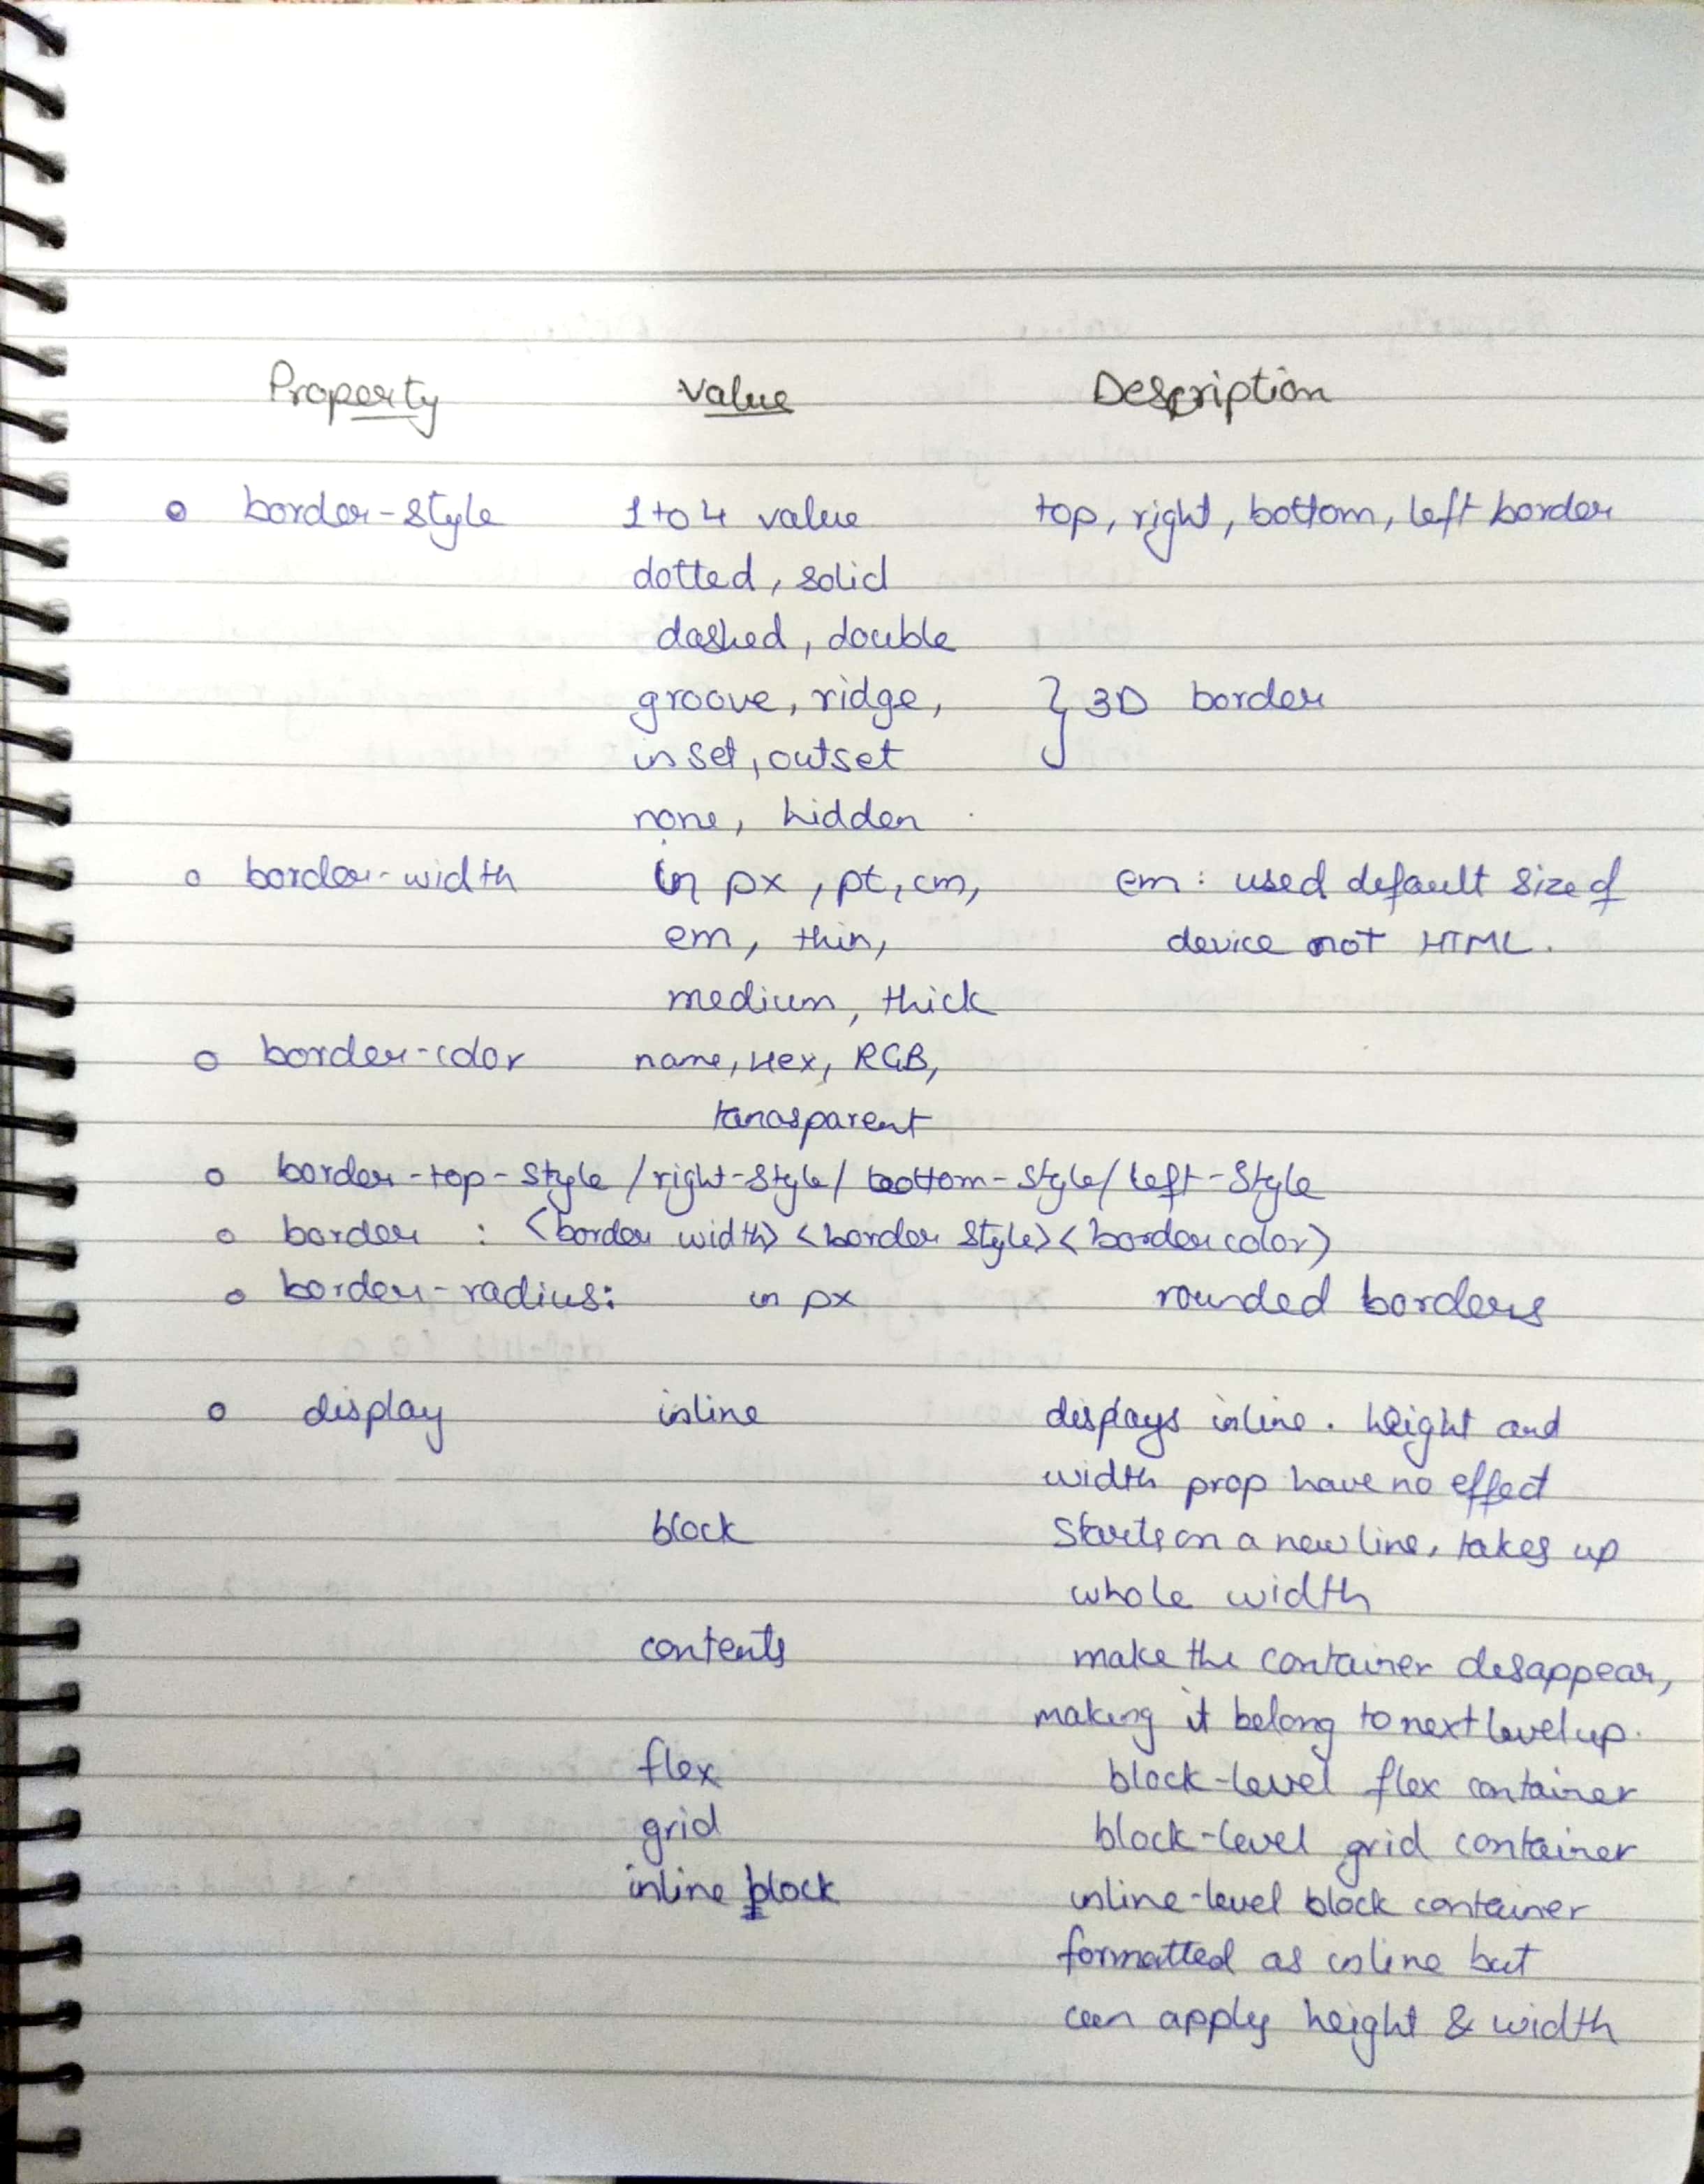 Property value Description
border-style 1 to 4 value top, right, bottom, left border
dotted, solid
dashed, double
groove, ridge, } 3D border
inset, outset
none, hidden
border-width in px, pt, cm, em : used default size of
em, thin, device not HTML.
medium, thick
border-color name, Hex, RGB,
tanasparent
border-top-style / right-style / bottom-style / left-style
border : <border width> <border style> <border color>
border-radius: in px rounded borders
display inline displays inline. height and
width prop have no effect
block Starts on a new line, takes up
whole width
contents make the container disappear,
making it belong to next level up.
flex block-level flex container
grid block-level grid container
inline block inline-level block container
formatted as inline but
can apply height & width